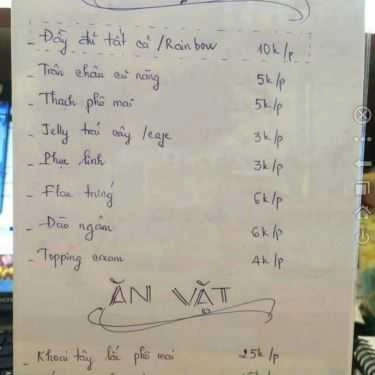 - Đầy đủ tất cả /Rainbow 10k/p
- Trân châu củ năng 5k/p
- Thạch phô mai 5k/p
- Jelly trái cây /cafe 3k/p
- Phục linh 3k/p
- Flan trứng 6k/p
- Đào ngâm 6k/p
- Topping cream 4k/p
ĂN VẶT
- Khoai tây lắc phô mai 25k/p